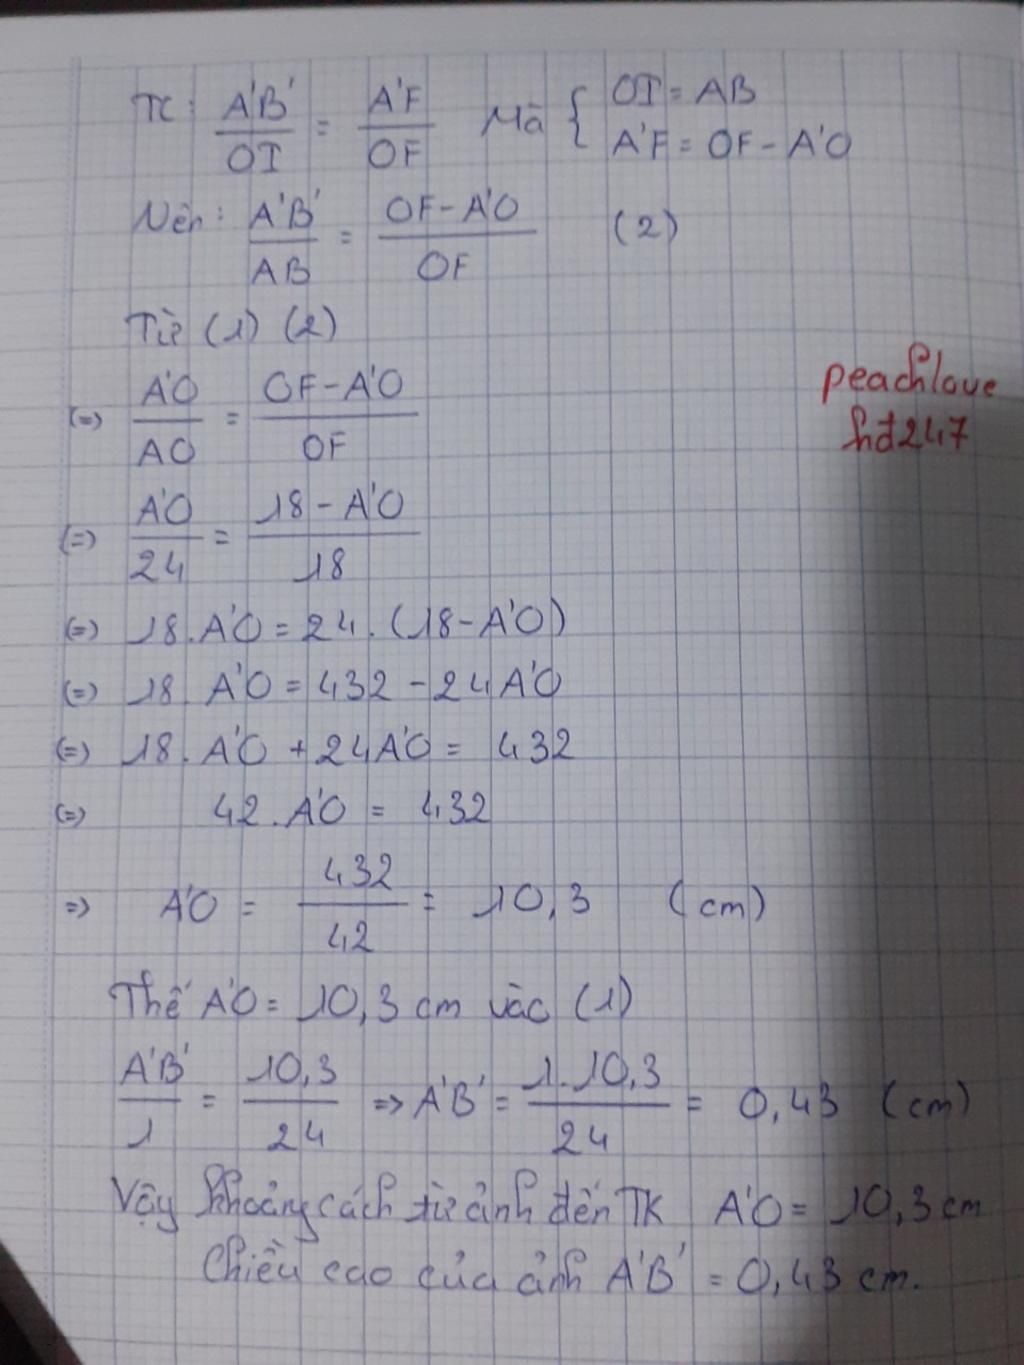 TC: A'B'/OI = A'F/OF Mà { OI = AB
A'F = OF - A'O
Nên: A'B'/AB = OF - A'O/OF (2)
Từ (1) (2)
(=) A'O/AO = OF - A'O/OF
peachlove
hđ247
(=) A'O/24 = 18 - A'O/18
(=) 18. A'O = 24. (18 - A'O)
(=) 18. A'O = 432 - 24 A'O
(=) 18. A'O + 24A'O = 432
(=) 42. A'O = 432
=> A'O = 432/42 = 10,3 (cm)
Thế A'O = 10,3 cm vào (1)
A'B'/1 = 10,3/24 => A'B' = 1.10,3/24 = 0,43 (cm)
Vậy khoảng cách từ ảnh đến TK A'O = 10,3 cm
Chiều cao của ảnh A'B' = 0,43 cm.